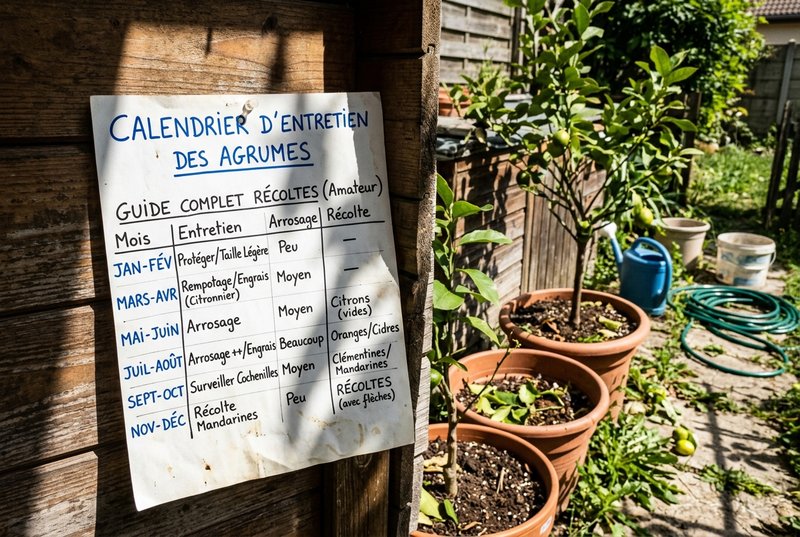 CALENDRIER D'ENTRETIEN
DES AGRUMES
GUIDE COMPLET RÉCOLTES (Amateur)
Mois Entretien Arrosage Récolte
JAN-FÉV Protéger/Taille Légère Peu —
MARS-AVR Rempotage/Engrais (Citronnier) Moyen —
MAI-JUIN Arrosage Moyen Citrons (vides)
JUIL-AOÛT Arrosage ++/Engrais Beaucoup Oranges/Cidres
SEPT-OCT Surveiller Cochenilles Moyen Clémentines/Mandarines
NOV-DÉC Récolte Mandarines Peu RÉCOLTES (avec flèches)